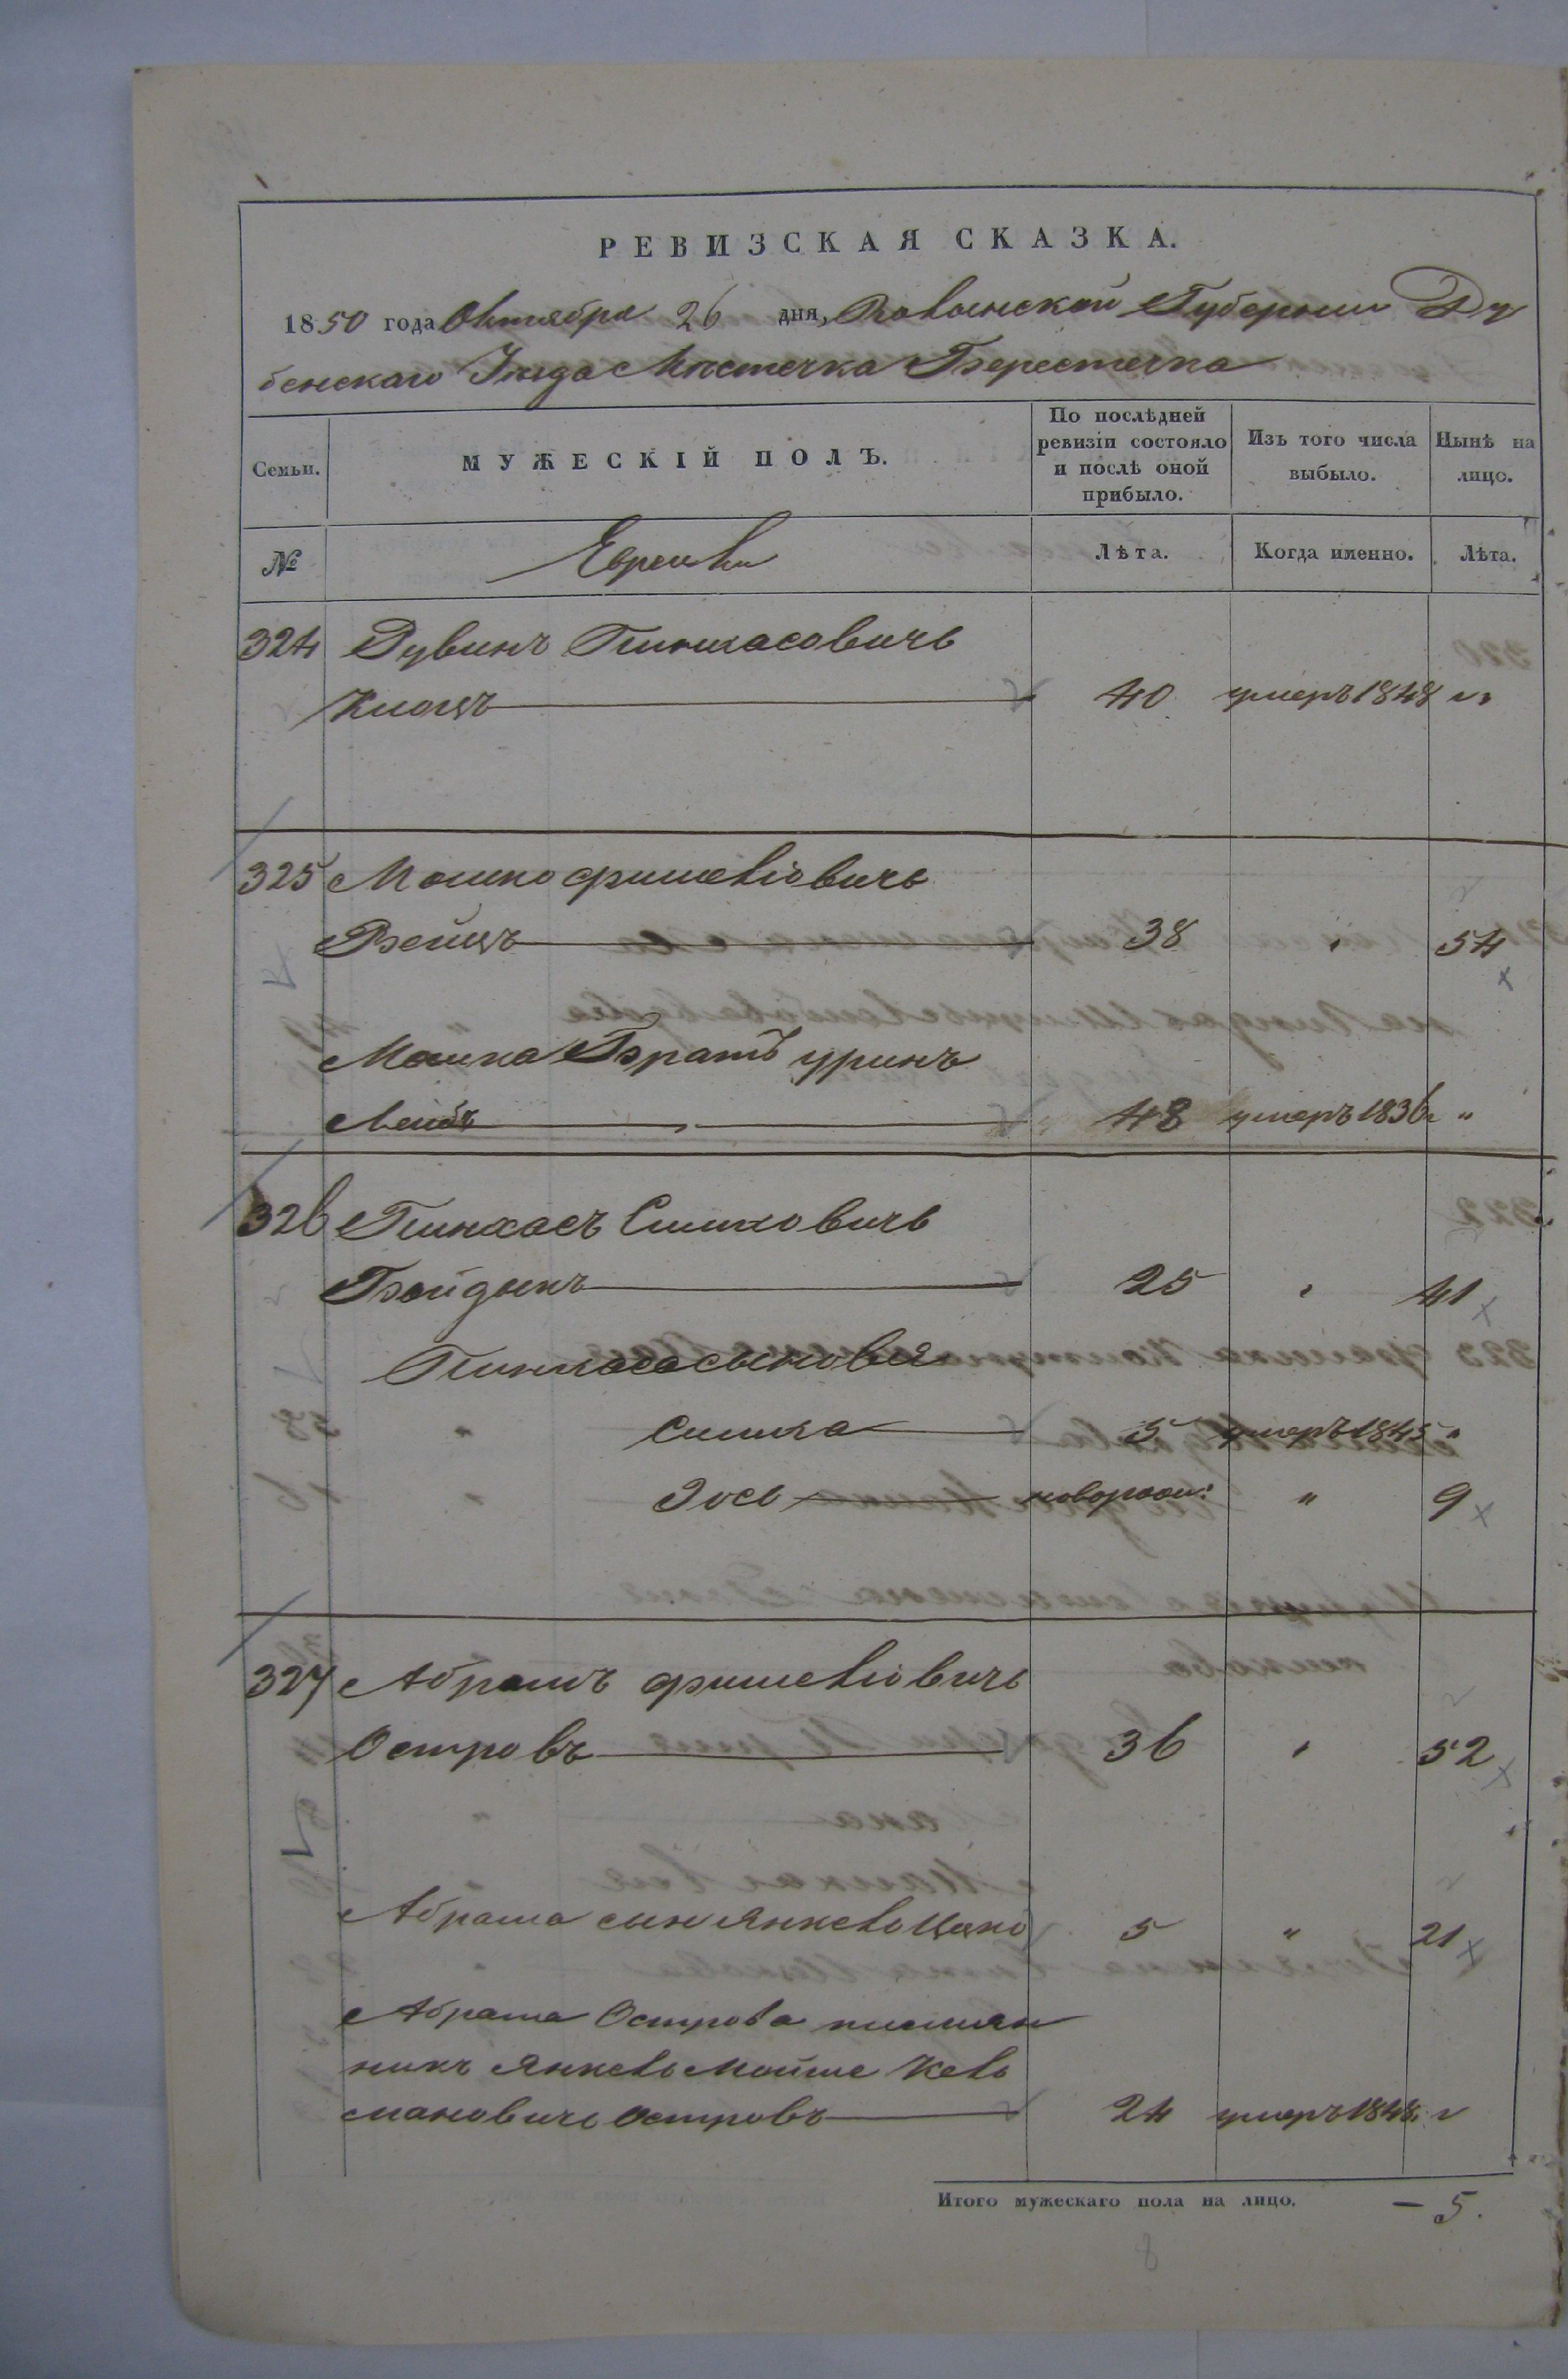 РЕВИЗСКАЯ СКАЗКА.
1850 года Октября 26 дня, Волынской Губернии Ду
бенскаго Уезда Местечка Берестечка
Семьи. МУЖЕСКІЙ ПОЛЪ. По послѣдней ревизіи состояло и послѣ оной прибыло. Изъ того числа выбыло. Нынѣ на лицо.
№ Евреи Лѣта. Когда именно. Лѣта.
324 Рувинъ Пинхасовичь
40 умеръ 1848 г.
325 Мошко Фишелiовичь
38 " 54
Мошка Братъ
48 умеръ 1836 г "
326 Пинхасъ Симховичь
25 " 41
Пинхаса сыновья
Симха 5 умеръ 1845 "
Іось новорож: " 9
327 Абрамъ Фишелiовичь
Островъ 36 " 52
Абрама сын Янкель Ицко 5 " 21
Абрама Острова племян
никъ Янкель Мойше Кель
мановичь Островъ 24 умеръ 1848 г
Итого мужескаго пола на лицо. — 5.
8